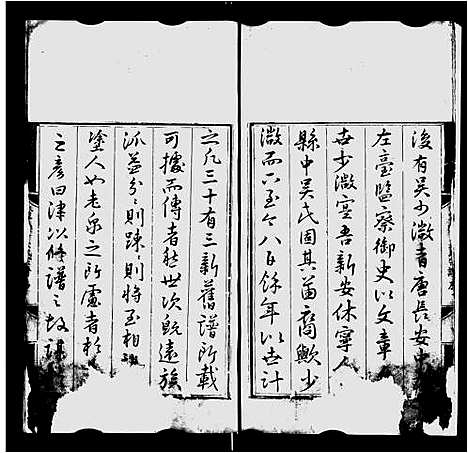 後有吳少澂者唐長安中
左臺監察御史以文章
世少澂寔吾新安休寧人
縣中吳氏固其苗裔歟少
澂而下至今八百餘年以世計
之凡三十有三新舊譜所載
可據而傳者然世次既遠族
派益分分則踈踈則將至相
塗人如老泉之所慮者於
之彥曰津以脩譜之故謀